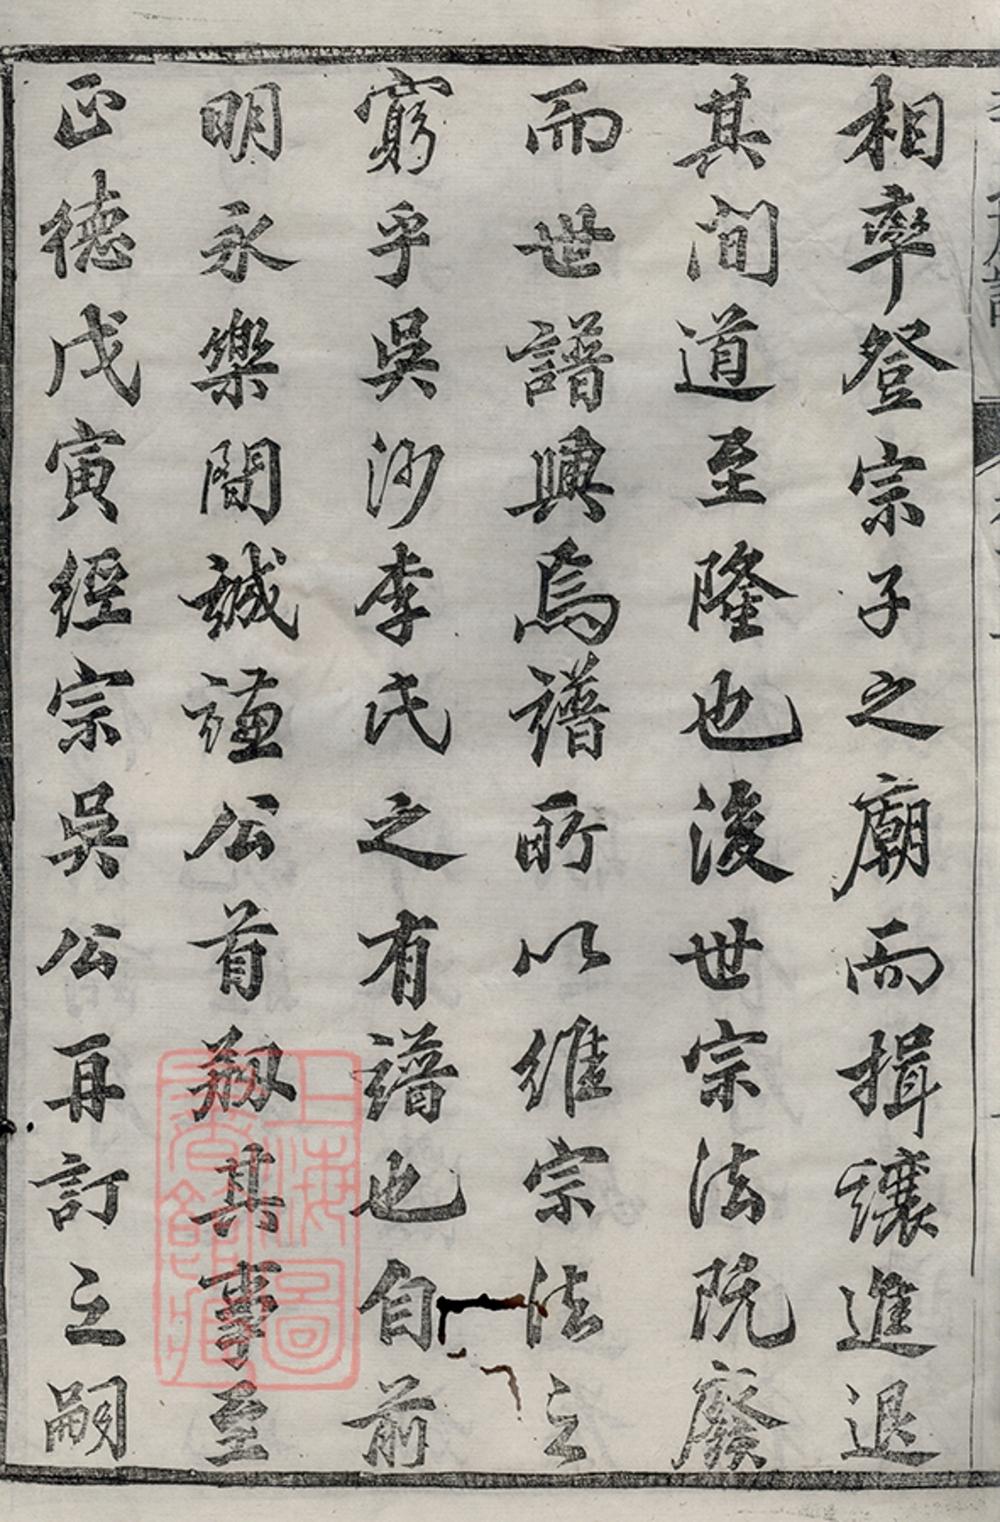 相率登宗子之廟而揖讓進退
其間道至隆也後世宗法既廢
而世譜興焉譜所以維宗法之
窮乎吳沙李氏之有譜也自前
明永樂間誠謹公首刱其事至
正德戊寅經宗吳公再訂之嗣
上海圖
書館藏